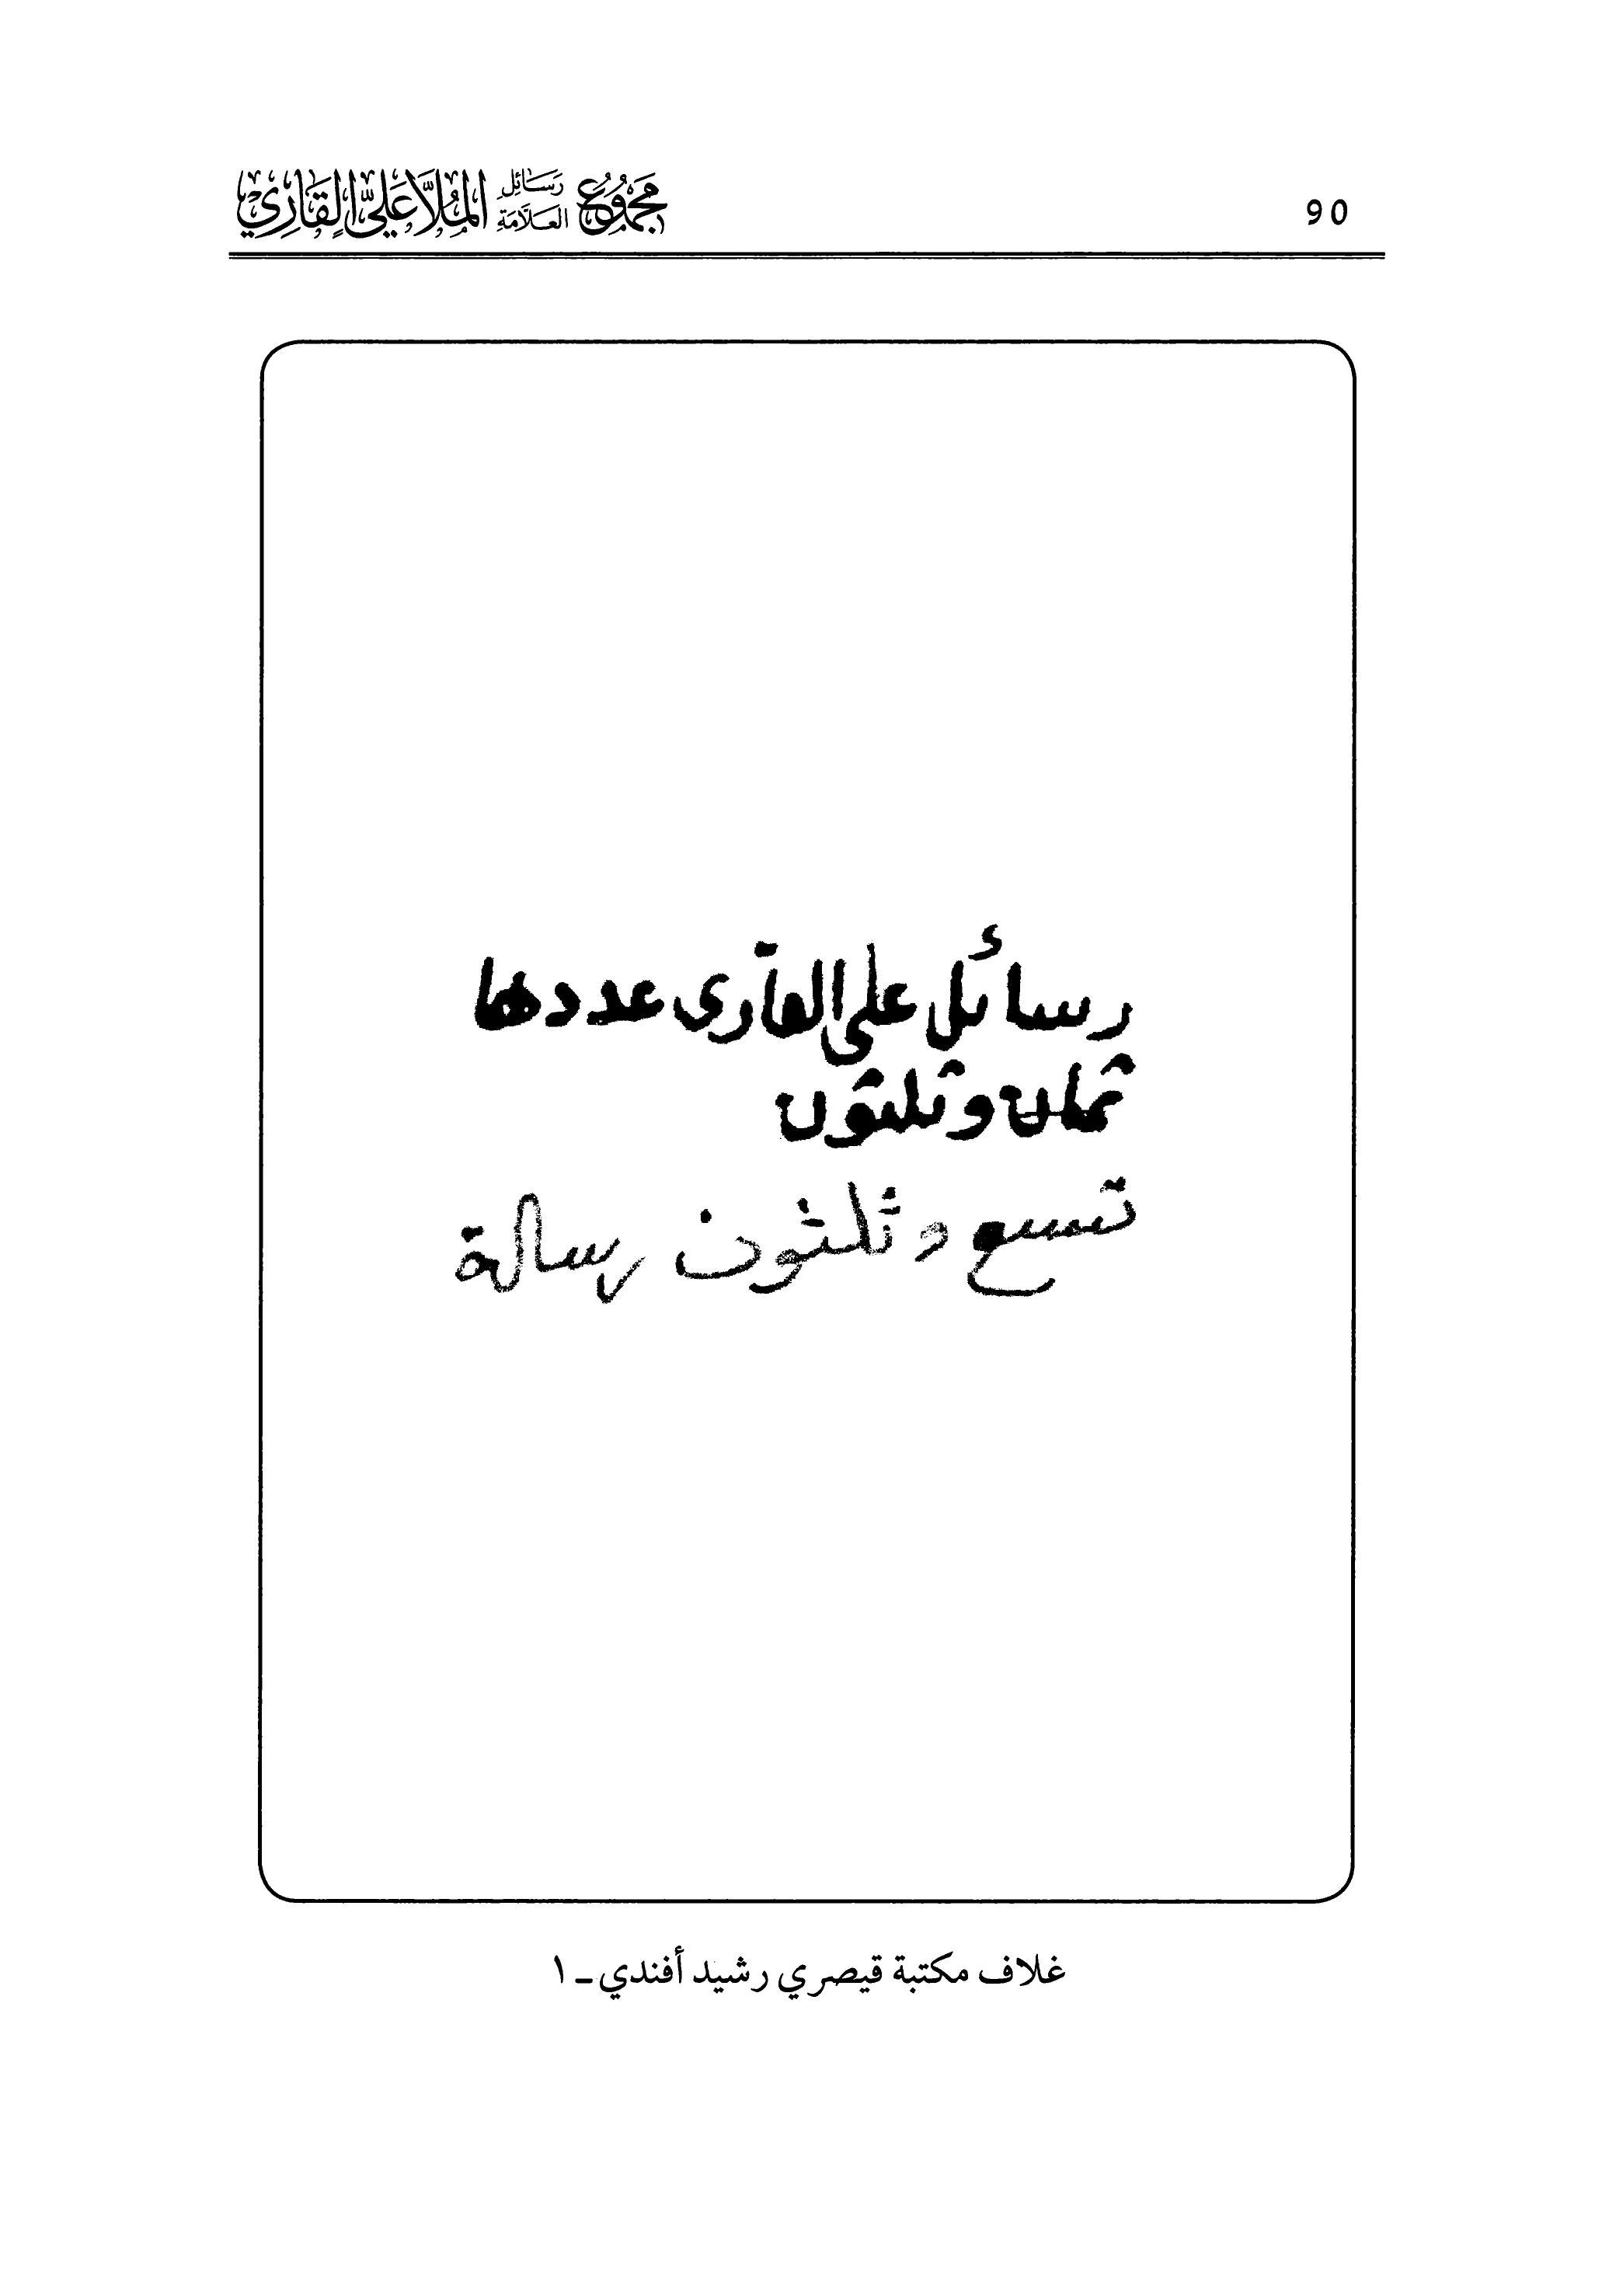 90
مجموع رسائل العلامة الملا علي القاري
رسائل على القارى عددها
ثمان وثلثون
تسع وثلثون رسالة
غلاف مكتبة قيصري رشيد أفندي - ١